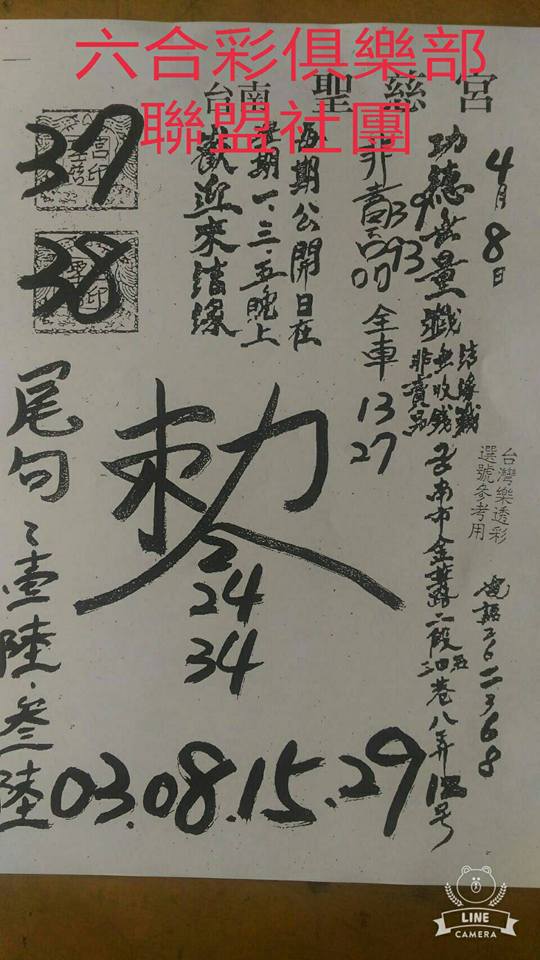 六合彩俱樂部
聯盟社團
台南 聖慈宮
4月8日
功德無量
結緣
無收錢
非賣品
39
93
全車
13
27
每期公開日在
星期一、三、五晚上
歡迎來結緣
37
38
尾句
壹陸.叁陸
敕
2
24
34
03.08.15.29
台灣樂透彩
選號參考用
台南市金華路二段
巷八弄
号
LINE
CAMERA